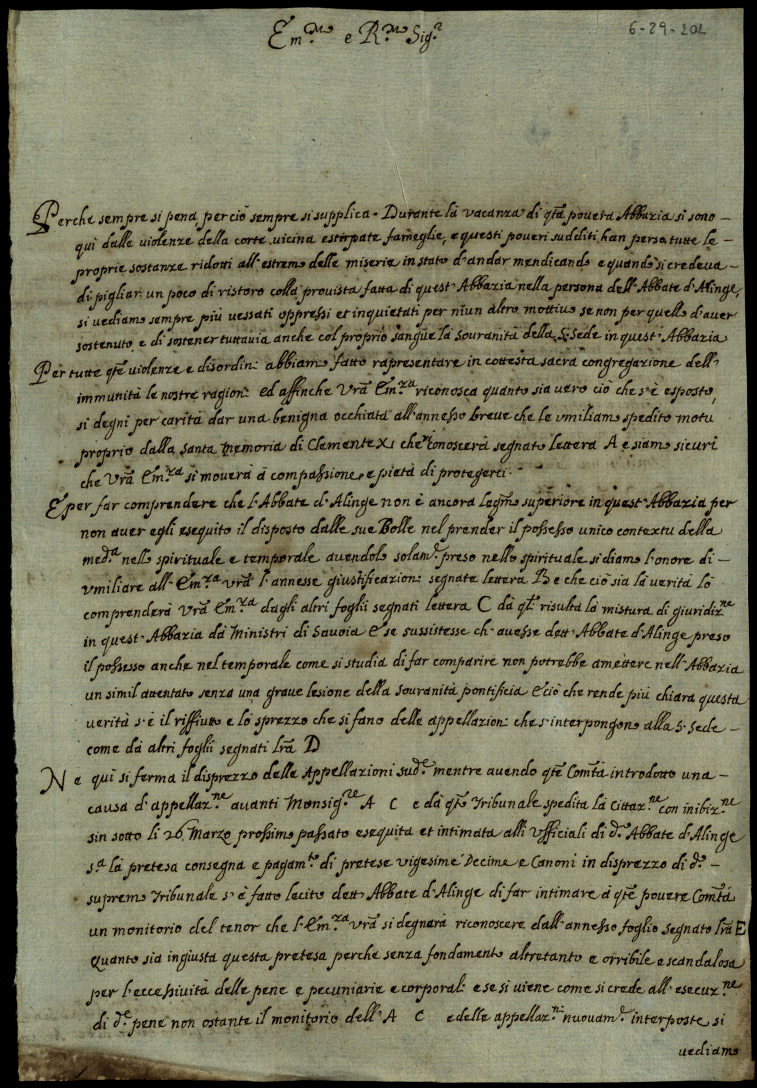 6-29-202
Em.mo e R.mo Sig.r
Perche sempre si pena, perciò sempre si supplica. Durante là vacanza di qtà povera Abbazia si sono –
qui dalle violenze della corte vicina estirpate fameglie, e questi poveri sudditi han perso tutte le –
proprie sostanze ridotti all'estremo delle miserie in stato d'andar mendicando e quando si credeva –
di pigliar un poco di ristoro colla provista fatta di quest'Abbazia nella persona dell'Abbate d'Alinge,
si vediamo sempre più vessati oppressi et inquietati per niun altro mottivo se non per quello d'aver
sostenuto, e di sostener tuttavia anche col proprio sangue la souranità della S. Sede in quest'Abbazia
Per tutte qte violenze e disordini abbiam fatto rapresentare in cottesta sacra congregazione dell'
immunità le nostre ragioni ed affinche Vrà Em.za riconosca quanto sia vero ciò che s'è esposto,
si degni per carità dar una benigna occhiata all'annesso breve che le umiliam spedito motu
proprio dalla santa memoria di Clemente XI che conoscerà segnato lettera A e siam sicuri
che Vrà Em.za si moverà à compassione e pietà di protegerci.
E per far comprendere che l'Abbate d'Alinge non è ancora legm̃o superiore in quest'Abbazia per
non auer egli esequito il disposto dalle sue Bolle nel prender il possesso unico contextu della
med.a nello spirituale e temporale auendolo solam.e preso nello spirituale si diamo l'onore di –
umiliare all'Em.za Vrà l'annesse giustificazioni segnate lettera B e che ciò sia la verità lo
comprenderà Vrà Em.za dagli altri fogli segnati lettera C dà qli risulta là mistura di giuridiz.ne
in quest'Abbazia dà Ministri di Savoia E se sussistesse ch'auesse dett'Abbate d'Alinge preso
il possesso anche nel temporale come si studia di far comparire non potrebbe amettere nell'Abbazia
un simil attentato senza una graue lesione della souranità pontificia E ciò che rende più chiara questa
verità s'è il riffiutto e lo sprezzo che si fano delle appellazioni che s'interpongono alla S. Sede –
come dà altri foglij segnati lrã D
Ne qui si ferma il disprezzo delle Appellazioni sud.e mentre auendo qte Comtà introdotto una –
causa d'appellaz.ne auanti Monsig.re A C e dà qto Tribunale spedita là Cittaz.ne con inibiz.ne
sin sotto li 26 Marzo prossimo passato esequita et intimata alli Vfficiali di d.o Abbate d'Alinge
s.a là pretesa consegna e pagam.to di pretese vigesime Decime e Canoni in disprezzo di d.o –
supremo Tribunale s'è fatto lecito dett'Abbate d'Alinge di far intimare à qte povere Comtà
un monitorio del tenor che l'Em.za Vrà si degnarà riconoscere dall'annesso foglio segnato lrã E
Quanto sia ingiusta questa pretesa perche senza fondamento altretanto e orribile e scandalosa
per l'eccessività delle pene e pecuniarie e corporali e se si viene come si crede all'esecuz.ne
di d.e pene non ostante il monitorio dell'A C e delle appellaz.ni nuouam.e interposte si
vediamo